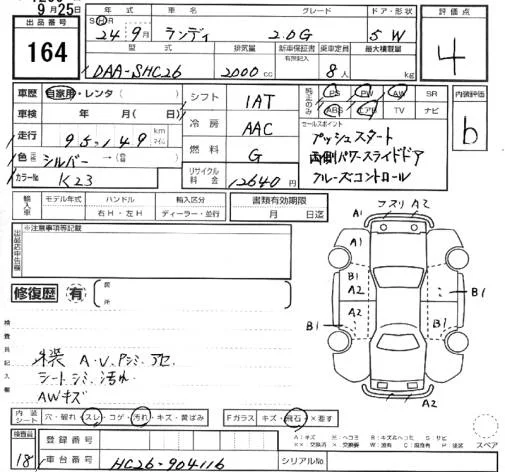 9月25日
出品番号
164
年式 車名 グレード ドア・形状 評価点
S H R
24年9月 ランディ 2.0G 5 W 4
型式 排気量 新車保証書 有無記入 乗車定員 最大積載量
DAA-SHC26 2000cc 8人 kg
車歴 自家用・レンタ( )
車検 年 月( 日)
走行 95,149 km マイル
色 シルバー → (替 )
カラーNo K23
シフト 1AT
冷房 AAC
燃料 G
リサイクル料金 12640円
純正のみ PS PW AW SR
ABS エアB TV ナビ
内装評価
b
セールスポイント
プッシュスタート
両側パワースライドドア
クルーズコントロール
輸入車 モデル年式 ハンドル 輸入区分 書類有効期限
年 右H・左H ディーラー・並行 月 日迄
出品店申告欄 ※注意事項等記載
修復歴 有 箇所
検査員記入欄
A1 フスリ A2
A1
B1 A2 B1
A2
B1
A2
A2
シートシミ 汚れ
AWキズ
内装シート 穴・破れ・スレ・コゲ・汚れ・キズ・黄ばみ Fガラス キズ・飛石 ×要す
検査員
18
登録番号
車台番号 HC26-904116 シリアルNo
スペア